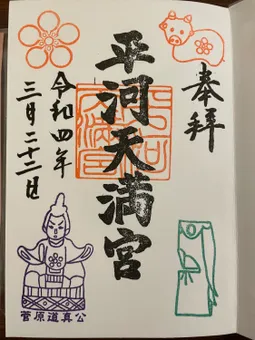 奉拝
平河天満宮
令和四年
三月二十二日
菅原道真公